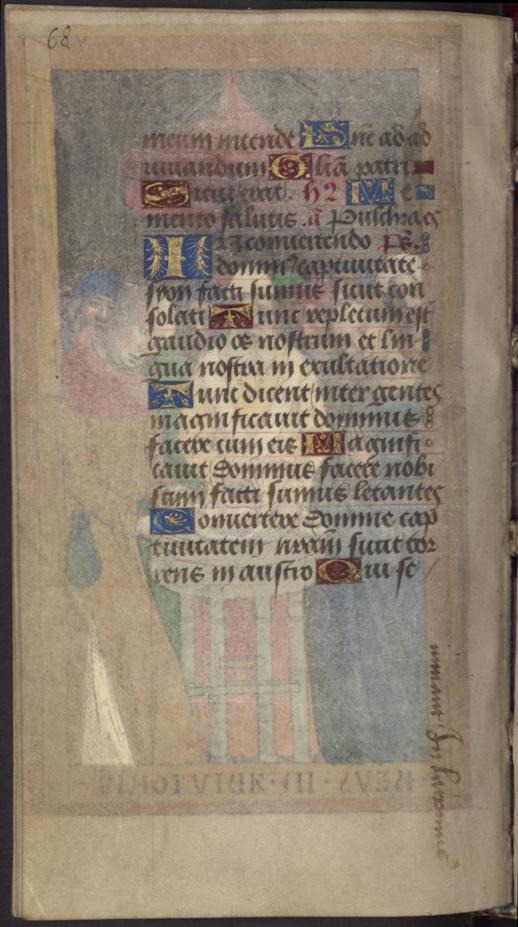 68v
meum intende Dñe ad ad
iuuandum Glia patri
Sicut erat. h2 Me
mento salutis. a Pulchra es
In conuertendo ps.
dominꝰ captiuitatē
syon facti sumus sicut con
solati Tunc repletum est
gaudio os nostrum et lin
gua nostra in exultatione
Tunc dicent inter gentes
magnificauit dominus
facere cum eis Magnifi
cauit dominus facere nobi
scum facti sumus letantes
Conuertere domine cap
tiuitatem nrām sicut tor
rens in austro Qui se